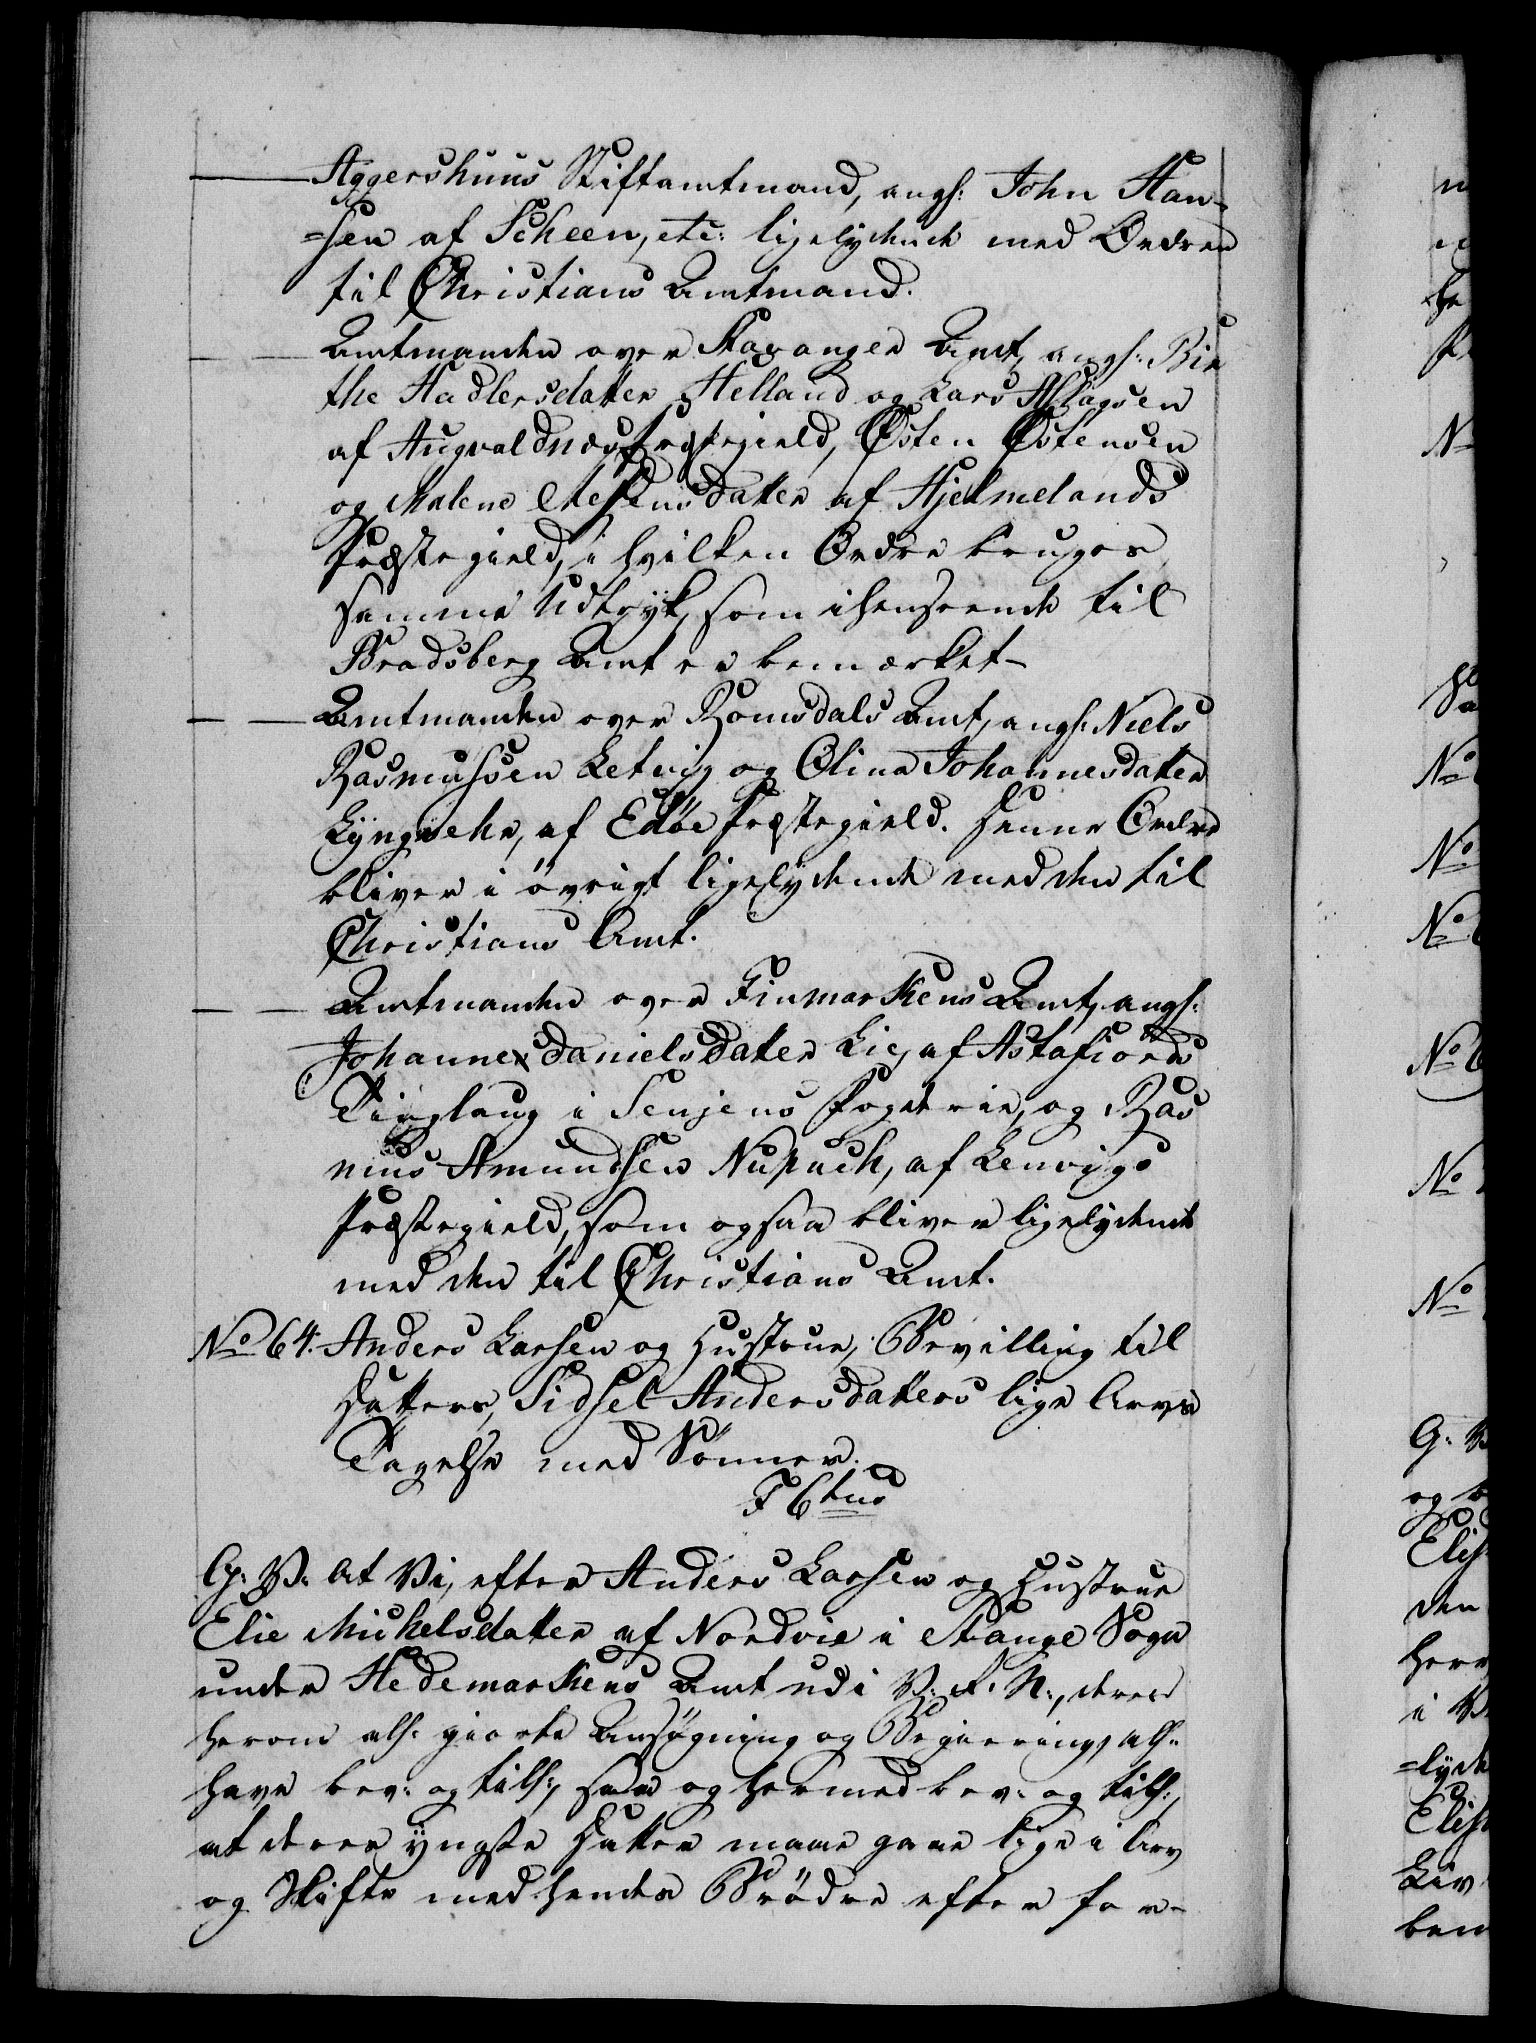 Aggershuus Stiftamtmand, angs: John Han-
=sen af Scheen, etc: ligelydende med Ordren
til Christians Amtmand.
Amtmanden over Stavanger Amt, angs: Bir
the Hadlersdatter Helland og Lars Aslagsen
af Augvaldnæs Præstegield, Østen Østensen
og Malene Chestensdatter af Hjelmelands
Præstegield, i hvilken Ordre bruges
samme Udtryk, som ihenseende til
Bradsberg Amt er bemærket-
Amtmanden over Romsdals Amt, angs: Niels
Rasmussen Letvig og Olina Johannesdatter
Lyngvehr, af Edøe Præstegield. Denne Ordre
bliver i øvrigt ligelydende med den til
Christians Amt.
Amtmanden over Finmarkens Amt, angs:
Johanne Danielsdatter Lie, af Astafiords
Tinglaug i Senjens Fogderie, og Ras
mus Amundsen Nupuch, af Lenvigs
Præstegield, som ogsaa bliver ligelydende
med den til Christians Amt.
No 64. Anders Larsen og Hustrue, Bevilling til
Datters, Sidsel Andersdatters lige Arve
Tagelse med Sønner.
F 6tus
G: V: At Vi, efter Anders Larsen og Hustrue
Elie Michelsdatter af Nordvie i Stange Sogn
under Hedemarkens Amt udi V: R: N:, deres
herom alh: giorte Ansøgning og Begiering, alh:
have bev: og till:, saa og hermed bev: og till:,
at deres yngste Datter maae gaae lige i Arv
og Skifte med hendes Brødre efter for-